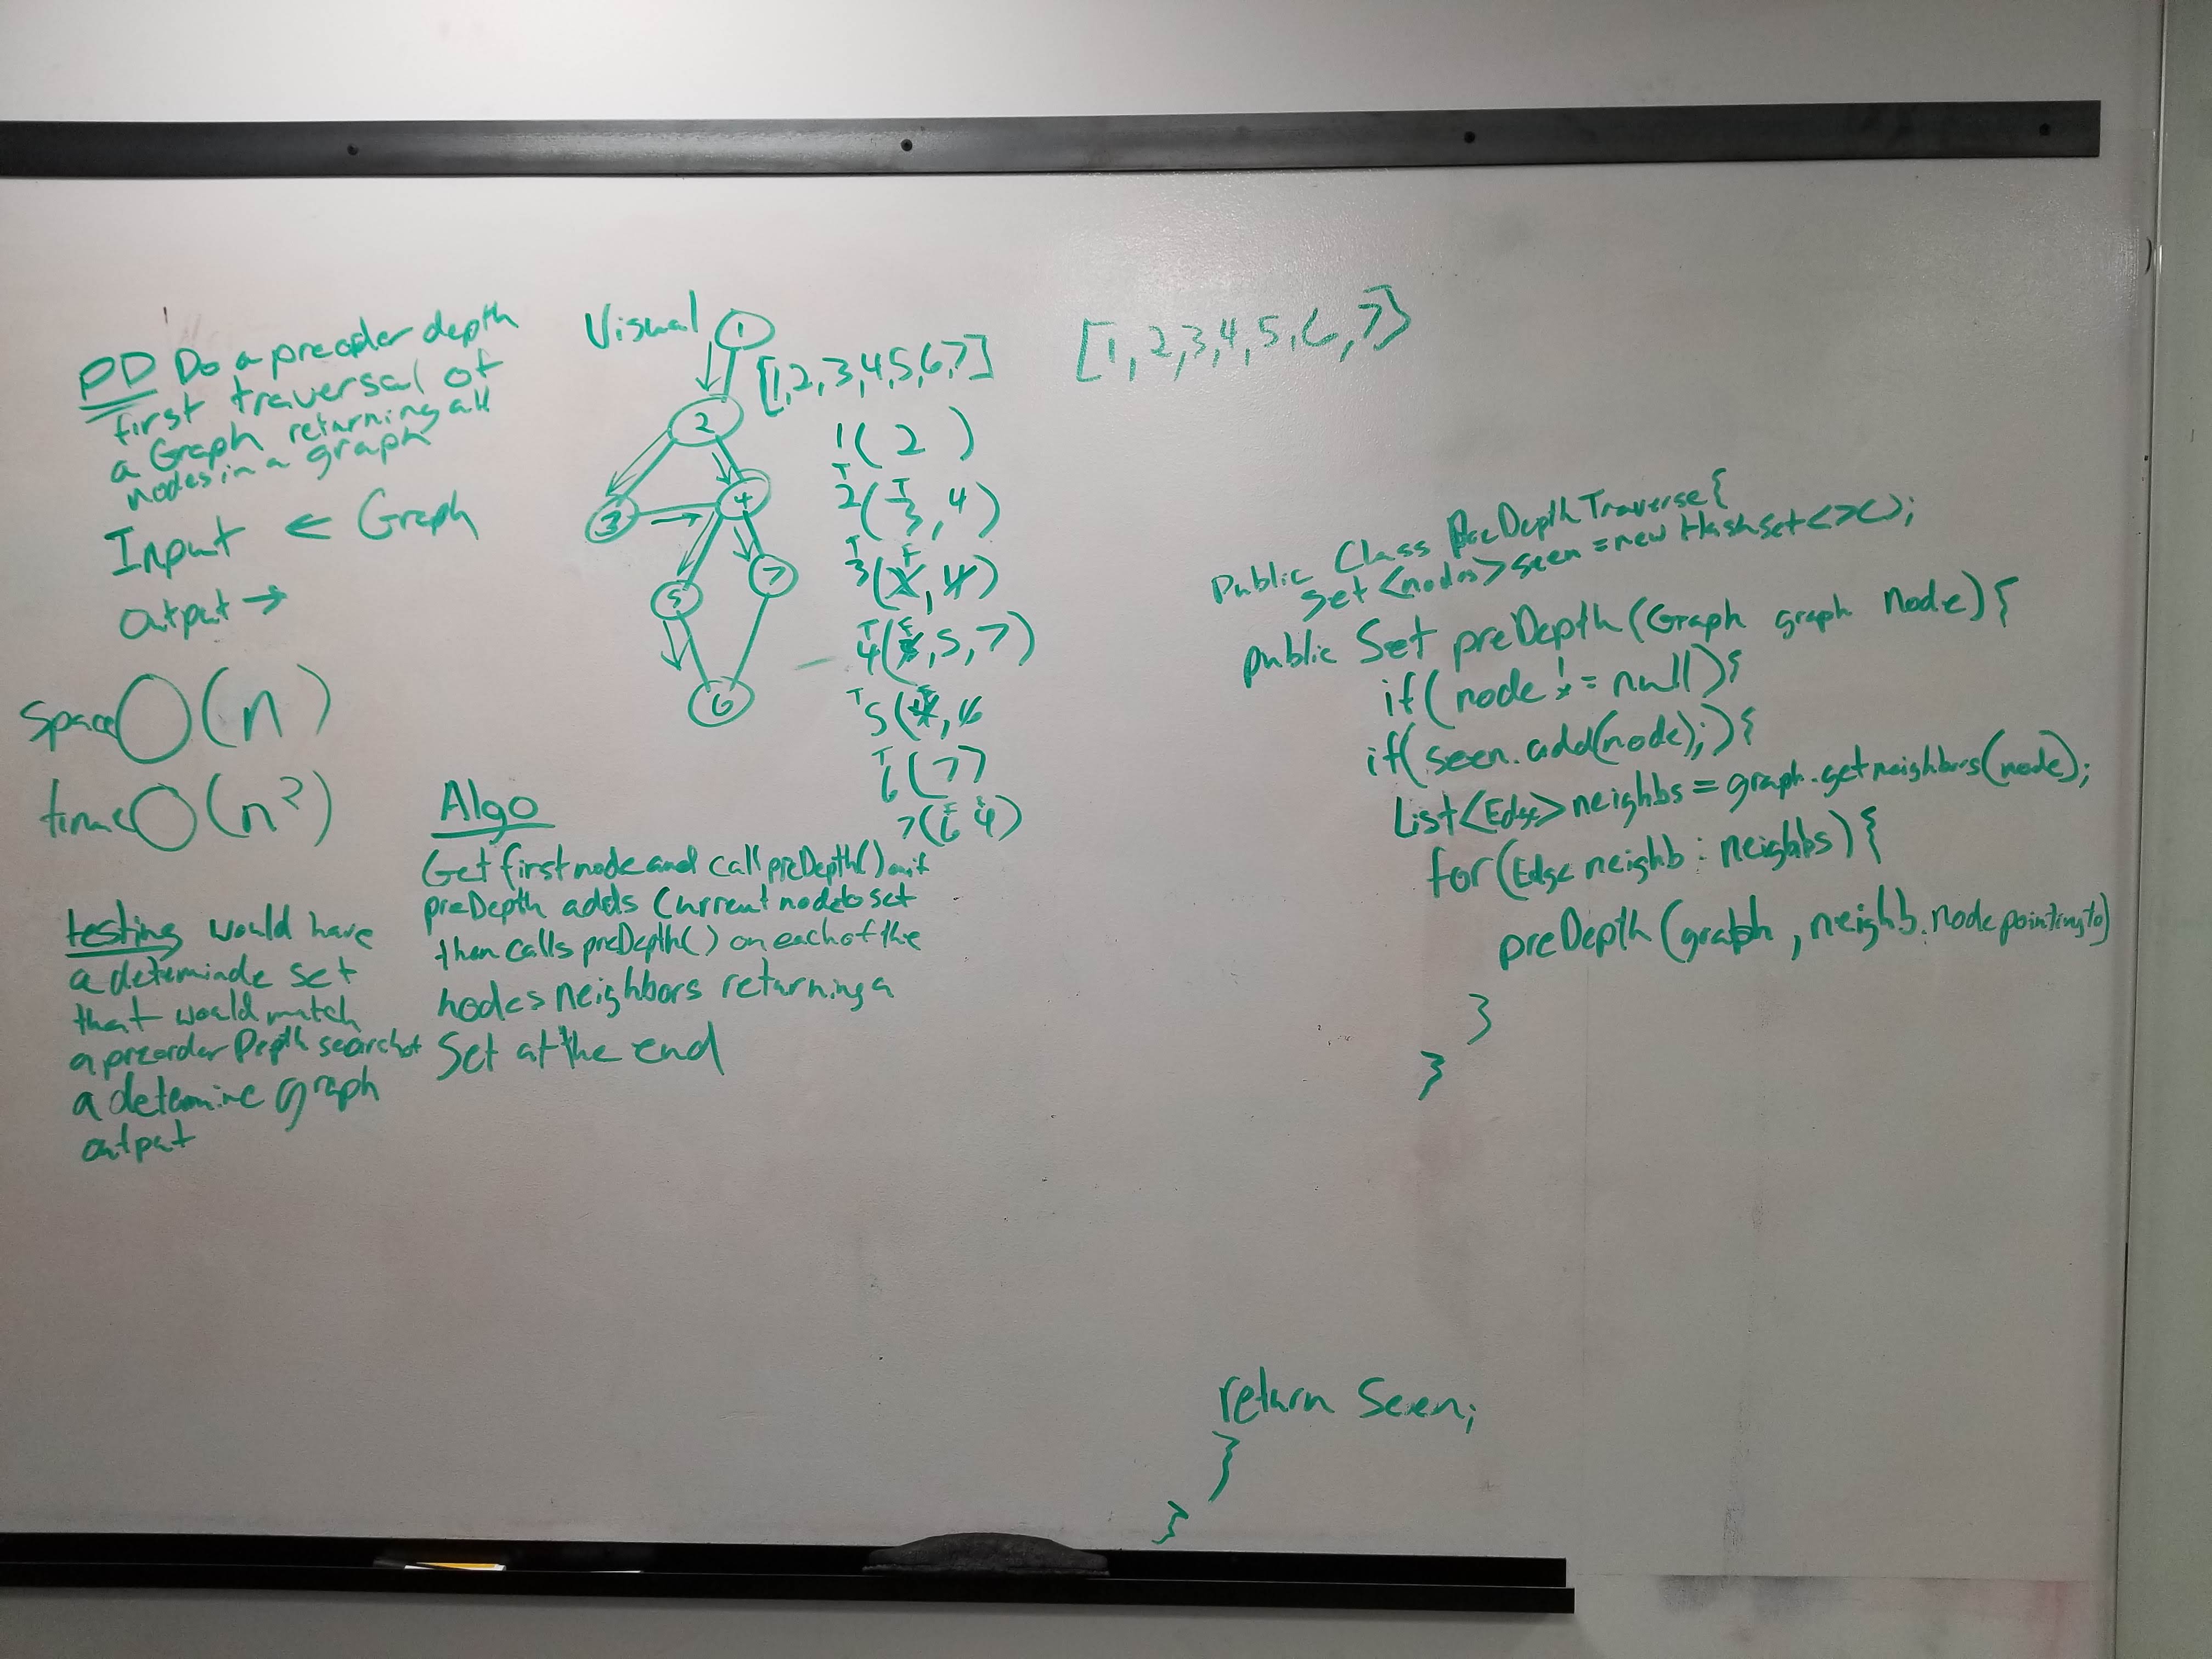 PD Do a preorder depth
first traversal of
a Graph returning all
nodes in a graph
Input ← Graph
Output →
Space O(n)
time O(n²)
testing would have
a determinde set
that would match
a preorder Depth search of
a determine graph
output
Visual
1
2
3
4
5
7
6
[1,2,3,4,5,6,7]
1(2 )
T T
2(3,4)
T F
3(2,4)
T F
4(3,5,7)
T F
5(4,6
T
6(7)
F F
7(6 4)
Algo
Get first node and call preDepth() on it
preDepth adds Current node to set
then calls preDepth() on each of the
nodes neighbors returning a
Set at the end
[1,2,3,4,5,6,7]
Public Class PreDepthTraverse{
Set <nodes> seen = new Hashset<>();
public Set preDepth(Graph graph Node){
if(node != null){
if(seen.add(node);){
List<Edge>neighbs = graph.getneighbors(node);
for(Edge neighb : neighbs){
preDepth(graph, neighb.node pointing to)
}
}
return Seen;
}
}